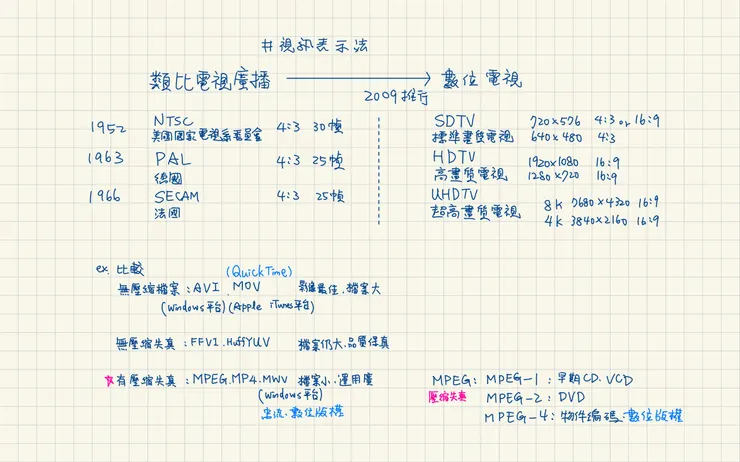 #視訊表示法
類比電視廣播 → 數位電視
2009推行
1952 NTSC 4:3 30幀
美國國家電視系委員會
1963 PAL 4:3 25幀
德國
1966 SECAM 4:3 25幀
法國
SDTV 720x576 4:3 or 16:9
標準畫質電視 640x480 4:3
HDTV 1920x1080 16:9
高畫質電視 1280x720 16:9
UHDTV 8k 7680x4320 16:9
超高畫質電視 4k 3840x2160 16:9
ex. 比較 (QuickTime)
無壓縮檔案:AVI.MOV 最佳.檔案大
(Windows平台)(Apple iTunes平台)
無壓縮失真:FFV1.HuffYUV 檔案仍大.品質保真
有壓縮失真:MPEG.MP4.MWV 檔案小.運用廣
(Windows平台)
串流.數位版權
MPEG: MPEG-1:早期CD.VCD
壓縮失真 MPEG-2:DVD
MPEG-4:物件編碼.數位版權